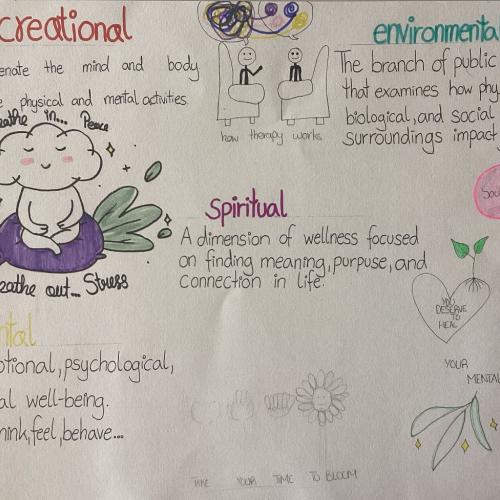 creational
enate the mind and body
e physical and mental activities.
eathe in... Peace
eathe out... Stress
how therapy works
environmenta
The branch of public
that examines how phy
biological, and social
surroundings impact
Spiritual
A dimension of wellness focused
on finding meaning, purpose, and
connection in life.
Sou
YOU
DESERVE
TO
HEAL
ntal
otional, psychological,
al well-being.
hink, feel, behave...
YOUR
MENTAL
TAKE YOUR TIME TO BLOOM